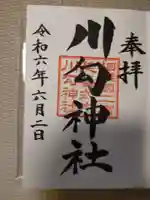 奉拝
川勾神社
令和六年六月二日